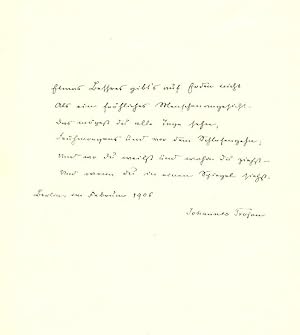 Etwas Bessres gibt's auf Erden nicht
Als ein fröhliches Menschenangesicht.
Das mögest du alle Tage sehn,
Frühmorgens und vor dem Schlafengehn,
Und wo du weilst und wohin du gehst
Und wenn du in einen Spiegel siehst.
Berlin im Februar 1906
Johannes Trojan